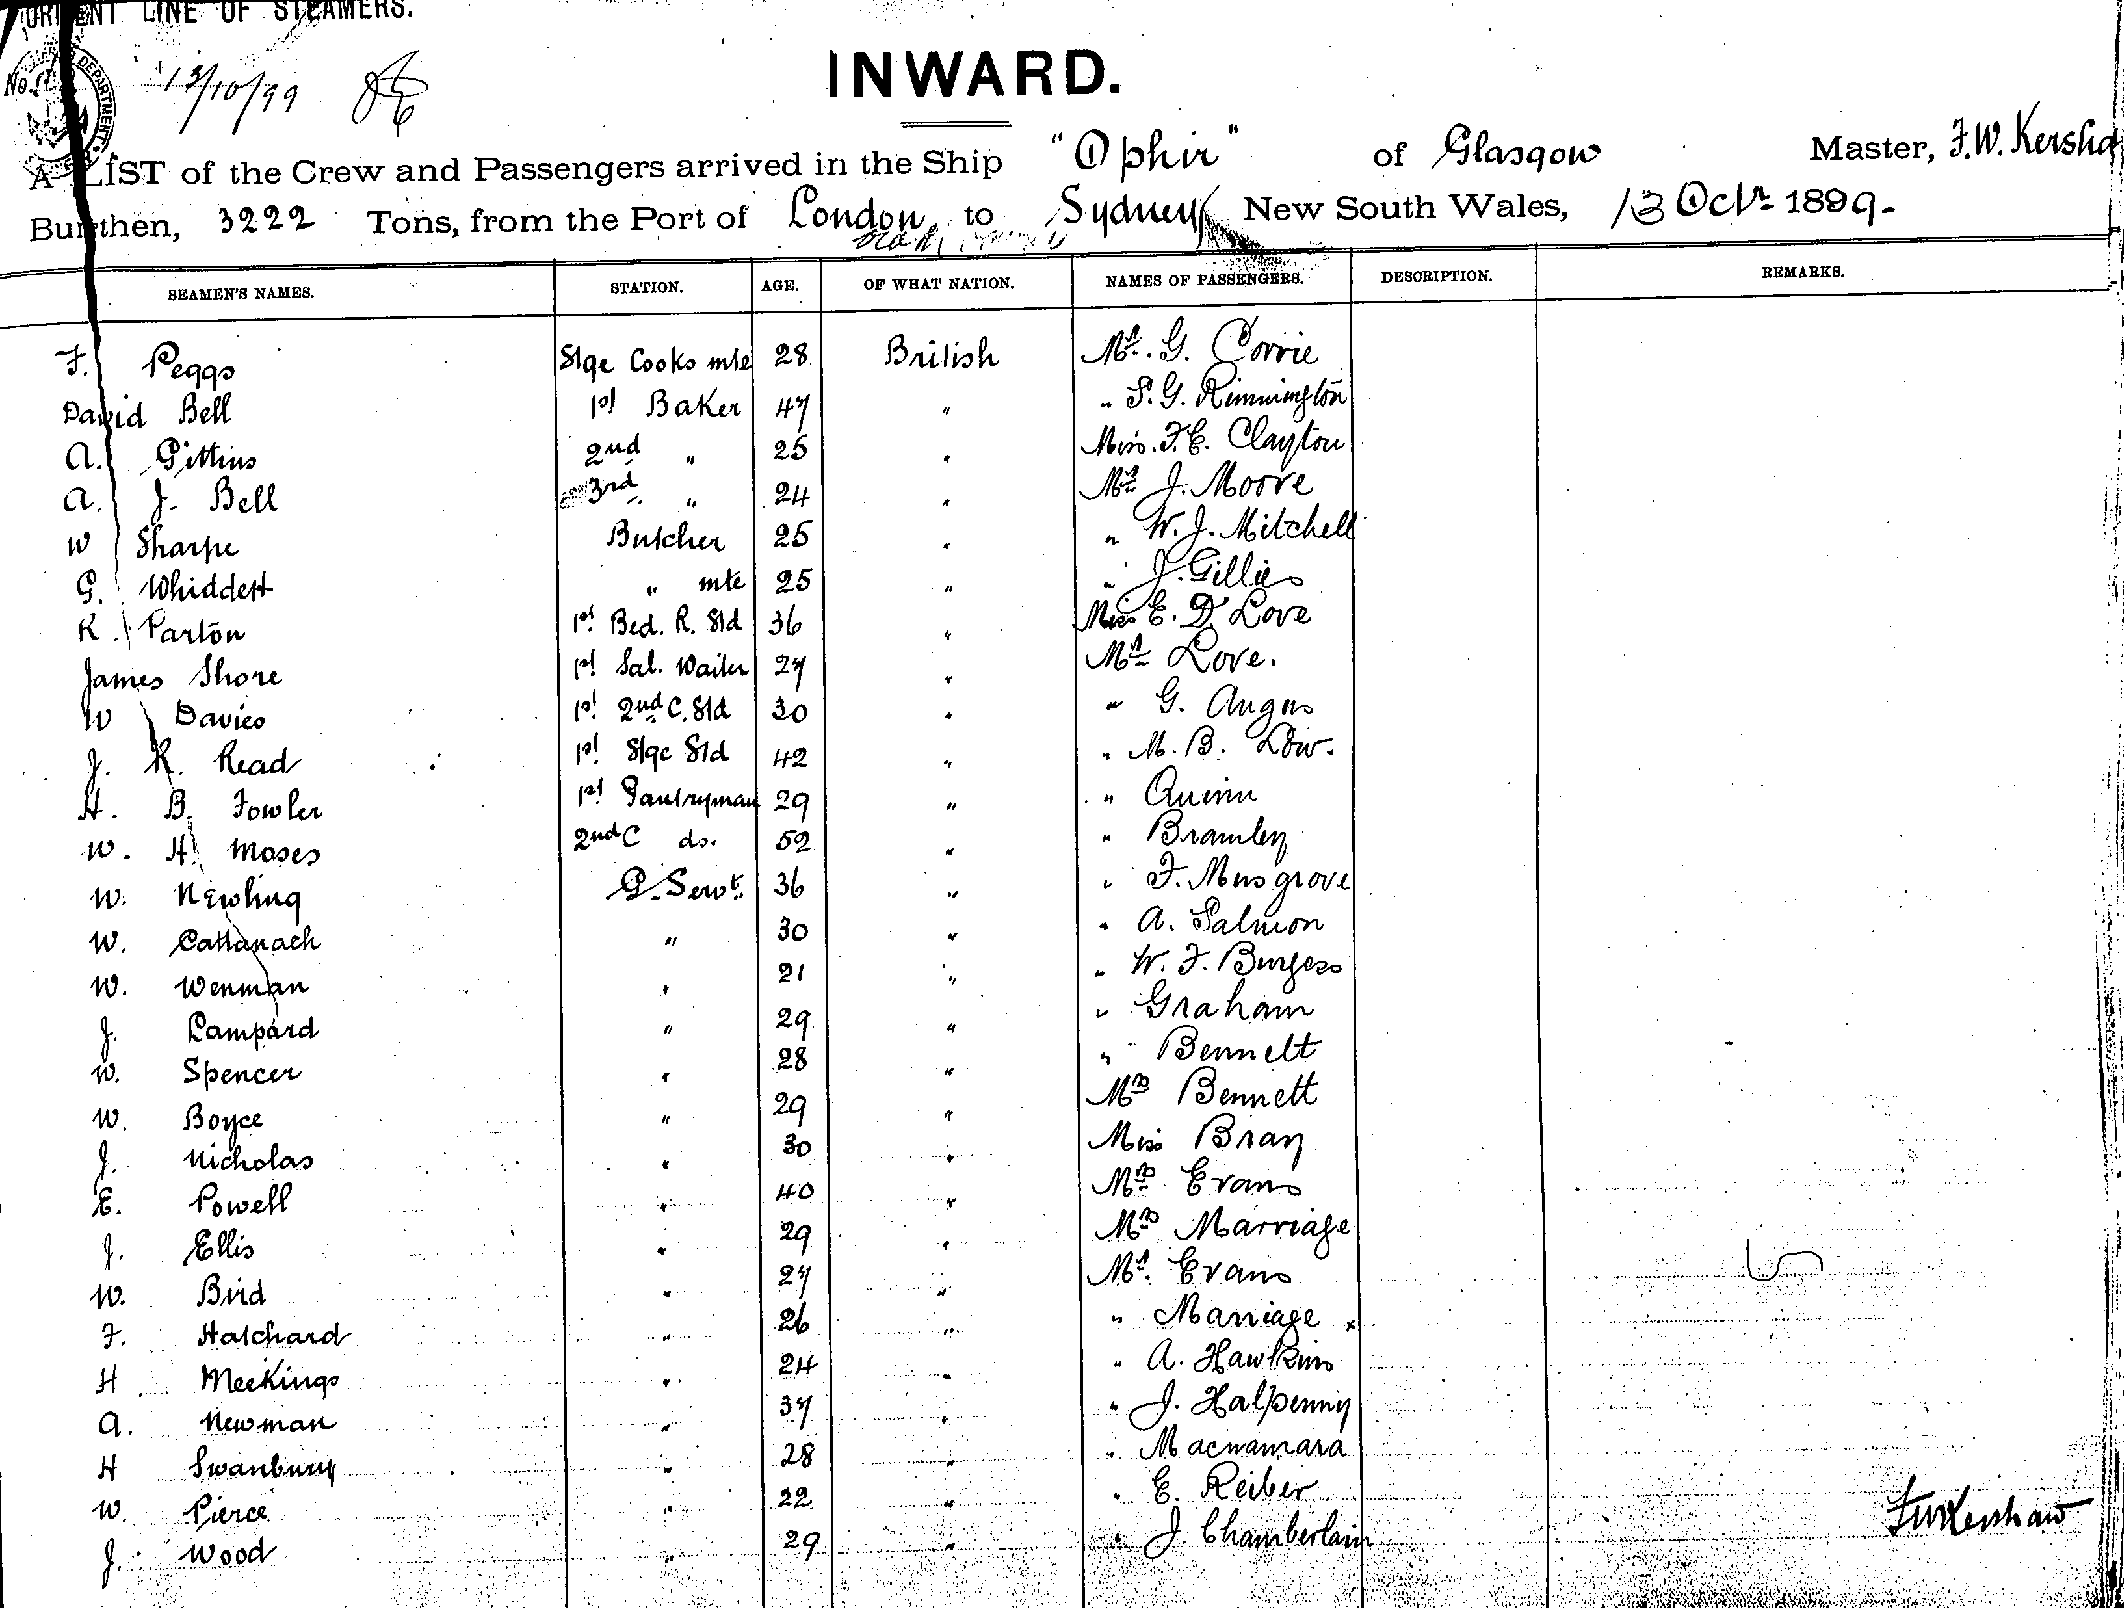 ORIENT LINE OF STEAMERS.
No.
DEPARTMENT.
13/10/99
INWARD.
A LIST of the Crew and Passengers arrived in the Ship "Ophir" of Glasgow Master, F.W. Kersha
Burthen, 3222 Tons, from the Port of London to Sydney New South Wales, 13 Octr 1899.
SEAMEN'S NAMES. STATION. AGE. OF WHAT NATION. NAMES OF PASSENGERS. DESCRIPTION. REMARKS.
F. Peggs Stge Cooks mte 28 British Mr. G. Corrie
David Bell 1st Baker 47 " " S. G. Rimmington
A. Gittins 2nd " 25 " Miss. F. E. Clayton
A. J. Bell 3rd " 24 " Mr J. Moore
W Sharpe Butcher 25 " " W. J. Mitchell
G. Whiddett " mte 25 " " J. Gillies
R. Parton 1st Bed. R. Std 36 " Miss E. D. Love
James Shore 1st Sal. Waiter 27 " Mr Love.
W Davies 1st 2nd C. Std 30 " " G. Angus
J. R. Read 1st Stge Std 42 " " M. B. Low.
H. B. Fowler 1st Pantryman 29 " " Quinn
W. H. Moses 2nd C do. 52 " " Bramley
W. Newling G. Servt. 36 " " F. Musgrove
W. Cattanach " 30 " " A. Salmon
W. Wenman " 21 " " W. F. Burgess
J. Lampard " 29 " " Graham
W. Spencer " 28 " " Bennett
W. Boyce " 29 " Mrs Bennett
J. Nicholas " 30 " Miss Bray
E. Powell " 40 " Mrs Evans
J. Ellis " 29 " Mrs Marriage
W. Bird " 27 " Mr. Evans
F. Hatchard " 26 " " Marriage x
H Meekings " 24 " " A. Hawkins
A. Newman " 37 " " J. Halpenny
H Swanbury " 28 " " Macnamara
W. Pierce " 22 " " E. Reiber
J. Wood " 29 " " J. Chamberlain
FW Kershaw